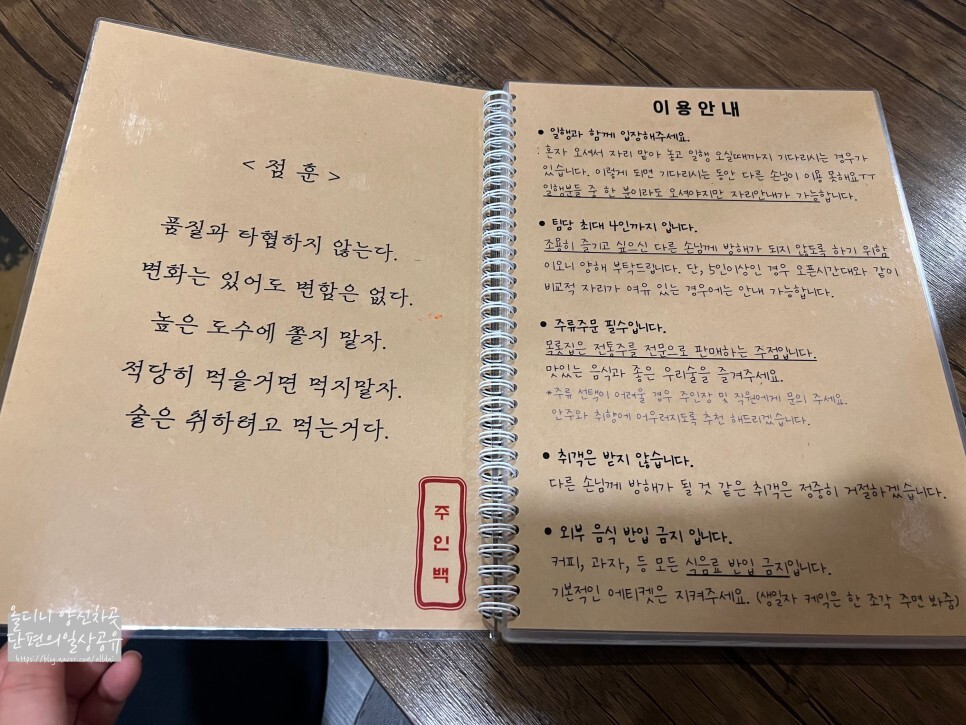 < 점 훈 >
품질과 타협하지 않는다.
변화는 있어도 변함은 없다.
높은 도수에 쫄지 말자.
적당히 먹을거면 먹지말자.
술은 취하려고 먹는거다.
주
인
백
이용안내
• 일행과 함께 입장해주세요.
: 혼자 오셔서 자리 맡아 놓고 일행 오실때까지 기다리시는 경우가
있습니다. 이렇게 되면 기다리시는 동안 다른 손님이 이용 못해요ㅜㅜ
일행분들 중 한 분이라도 오셔야지만 자리안내가 가능합니다.
• 팀당 최대 4인까지 입니다.
조용히 즐기고 싶으신 다른 손님께 방해가 되지 않도록 하기 위함
이오니 양해 부탁드립니다. 단, 5인이상인 경우 오픈시간대와 같이
비교적 자리가 여유 있는 경우에는 안내 가능합니다.
• 주류주문 필수입니다.
목롯집은 전통주를 전문으로 판매하는 주점입니다.
맛있는 음식과 좋은 우리술을 즐겨주세요.
*주류 선택이 어려울 경우 주인장 및 직원에게 문의 주세요.
안주와 취향에 어우러지도록 추천 해드리겠습니다.
• 취객은 받지 않습니다.
다른 손님께 방해가 될 것 같은 취객은 정중히 거절하겠습니다.
• 외부 음식 반입 금지 입니다.
커피, 과자, 등 모든 식음료 반입 금지입니다.
기본적인 에티켓은 지켜주세요. (생일자 케익은 한 조각 주면 봐줌)
올디니 양선차곳
단편의일상공유